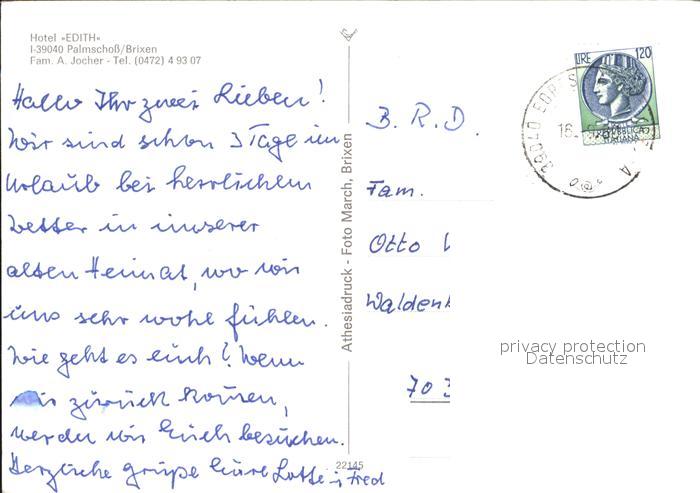 Hotel «EDITH«
I-39040 Palmschoß/Brixen
Fam. A. Jocher - Tel. (0472) 4 93 07
Hallo Ihr zwei Lieben!
Wir sind schon 3 Tage im
Urlaub bei herrlichem
Wetter in unserer
alten Heimat, wo wir
uns sehr wohl fühlen.
Wie geht es euch? Wenn
wir zurück kommen,
werden wir Euch besuchen.
Herzliche Grüße Eure Lotte u. Fred
Athesiadruck - Foto March, Brixen
22145
B. R. D.
Fam.
Otto
Walden
70
LIRE 120
REPUBBLICA
ITALIANA
39040
privacy protection
Datenschutz